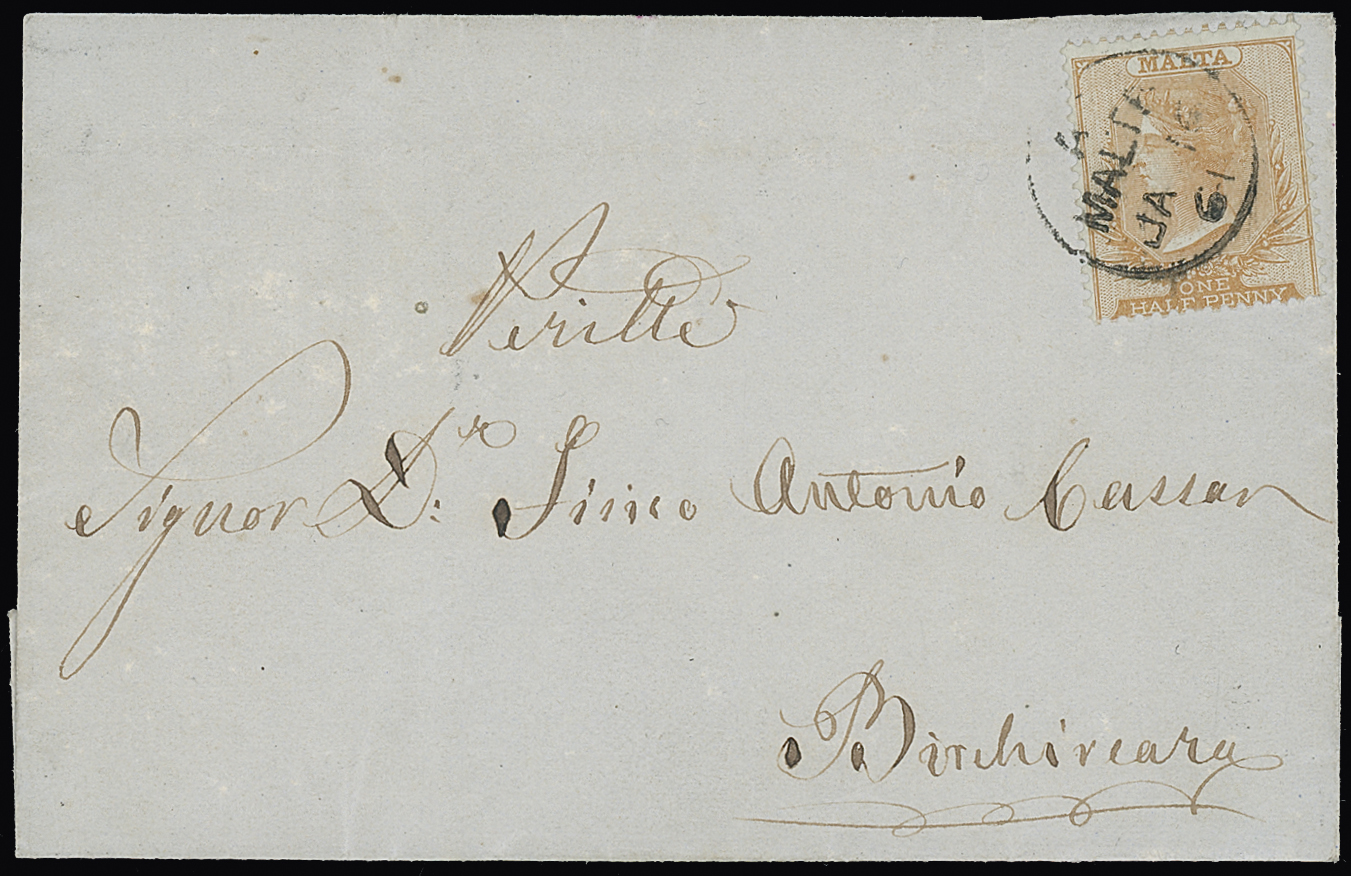 MALTA
A
MALTA
JA 10
61
ONE
HALF PENNY
Signor Dr. Antonio Cassar
Birchircara